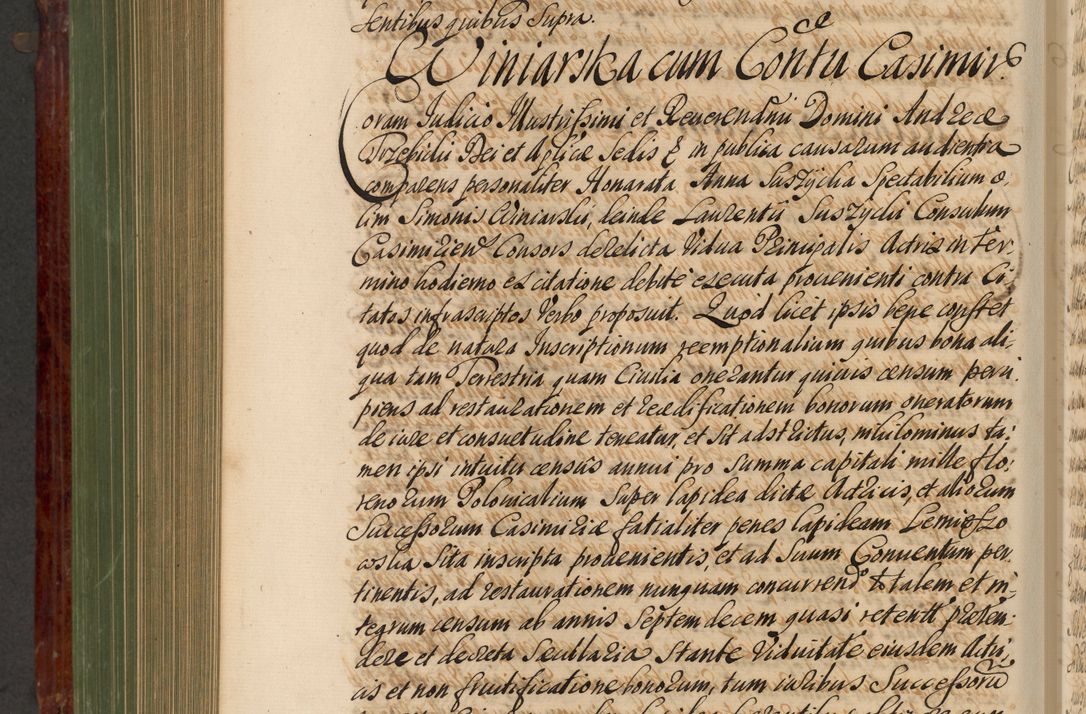 sentibus quibus supra.
Winiarska cum Contu Casimir.
Coram Judicio Illustrissimi et Reverendmi Domini Andreæ
Trzebicki Dei et Aplicæ Sedis & in publica causarum audientia
comparens personaliter Honorata Anna Suszycka Spectabilium o-
lim Simonis Winiarski, deinde Laurentii Suszycki Consulum
Casimirien Consors derelicta Vidua Principalis Actrix in ter-
mino hodierno ex citatione debite executa provenienti contra Ci-
tatos infrascriptos Verbo proposuit. Quod licet ipsis bene constet
quod de natura Inscriptionum reemptionalium quibus bona ali-
qua tam Terrestria quam Civilia onerantur quivis censum perci-
piens ad restaurationem et reædificationem bonorum oneratorum
de iure et consuetudine teneatur, et sit adstrictus, nihilominus ta-
men ipsi intuitu census annui pro summa capitali mille flo-
renorum Polonicalium super lapidea dictæ Actricis, et aliorum
Successorum Casimiriæ fatialiter penes lapideam
sita inscripta provenientis, et ad suum Conventum per-
tinentis, ad restaurationem nunquam concurrend totalem et in-
tegrum censum ab annis septemdecem quasi retenti præten-
dere et decreta sæcularia stante Viduitate eiusdem Actri-
cis et non fructificatione bonorum, tum iuribus Successorū